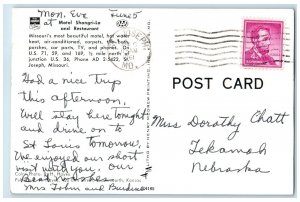 Mon. Eve June 5
at Motel Shangri-La
and Restaurant
Missouri's most beautiful motel, hot water
heat, air-conditioned, carpets, tile baths,
porches, car ports, TV, and phones. On
U.S. 71, 59, and 169, ½ mile north of
junction U.S. 36, Phone AD 2-
Joseph, Missouri.
Had a nice trip
this afternoon,
Will stay here tonight
and drive on to
St Louis tomorrow,
We enjoyed our short
visit with you, our
best
Mrs John and
POST CARD
Miss Dorothy Chatt
Tekamah
Nebraska